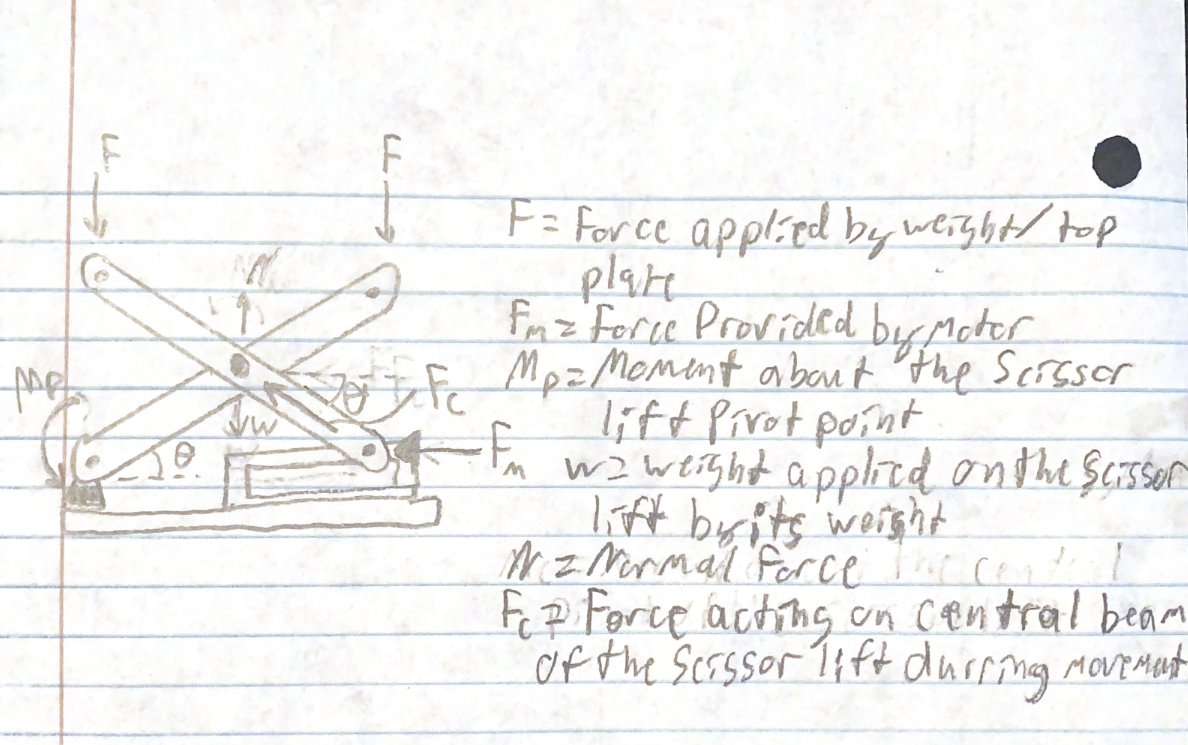 F
F
N
Mp
θ
Fc
w
θ
Fm
F = Force applied by weight/top
plate
Fm = Force Provided by Motor
Mp = Moment about the Scissor
lift Pivot point
w = weight applied on the Scissor
lift by its weight
N = Normal Force
Fc = Force acting on central beam
of the Scissor lift durring movement